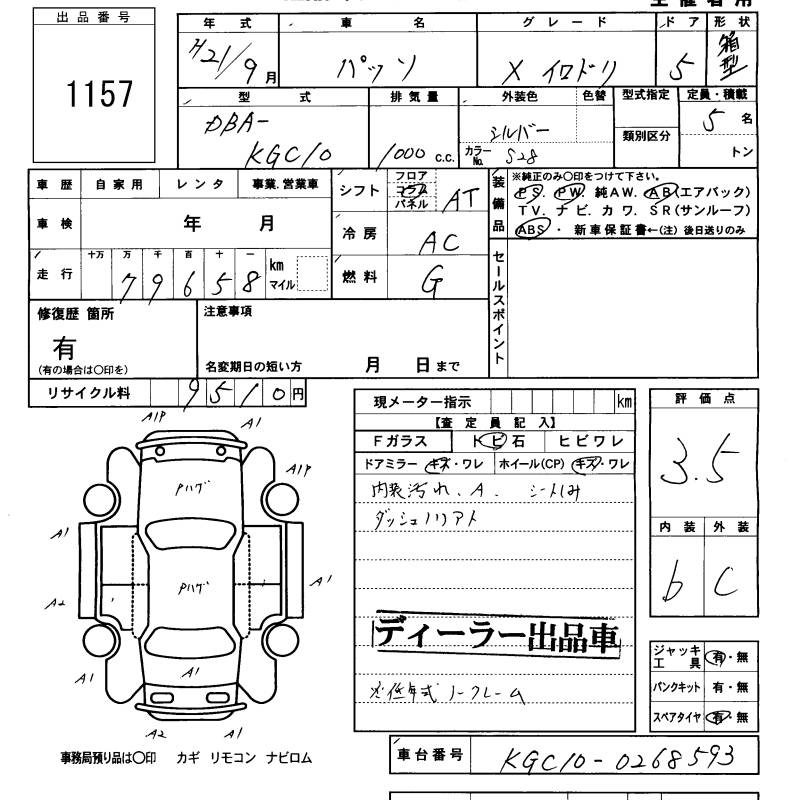 出品番号
1157
年式 車名 グレード ドア 形状
H21/9月 パッソ X イロドリ 5 箱型
型式 排気量 外装色 色替 型式指定 定員・積載
DBA-
KGC10 1000 c.c. シルバー
カラーNo. S28 類別区分 5名
トン
車歴 自家用 レンタ 事業.営業車
車検 年 月
走行 十万 万 千 百 十 一
79658 km
マイル
シフト フロア コラム パネル AT
冷房 AC
燃料 G
装備品
※純正のみ〇印をつけて下さい。
PS. PW 純AW. AB(エアバック)
TV. ナビ. カワ. SR(サンルーフ)
ABS ・ 新車保証書←(注) 後日送りのみ
セールスポイント
修復歴 箇所
有
(有の場合は〇印を)
注意事項
名変期日の短い方 月 日まで
リサイクル料 9510円
現メーター指示 km
【査定員記入】
Fガラス トビ石 ヒビワレ
ドアミラー キズ・ワレ ホイール(CP) キズ・ワレ
内装汚れ. A. シートしみ
ダッシュ
ディーラー出品車
評価点
3.5
内装 外装
b C
A1P A1
Pハゲ A1P
A1
Pハゲ A1
A2
A1 A1 A1
A2 A1
ジャッキ工具 有・無
パンクキット 有・無
スペアタイヤ 有・無
事務局預り品は〇印 カギ リモコン ナビロム
車台番号 KGC10-0268593